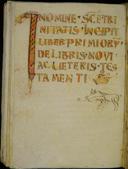 IN NOMINE SCE TRI
NITATIS INCIPIT
LIBER PRIMI ORV
DE LIBRIS NOVI
AC UETERIS TES
TAMENTI